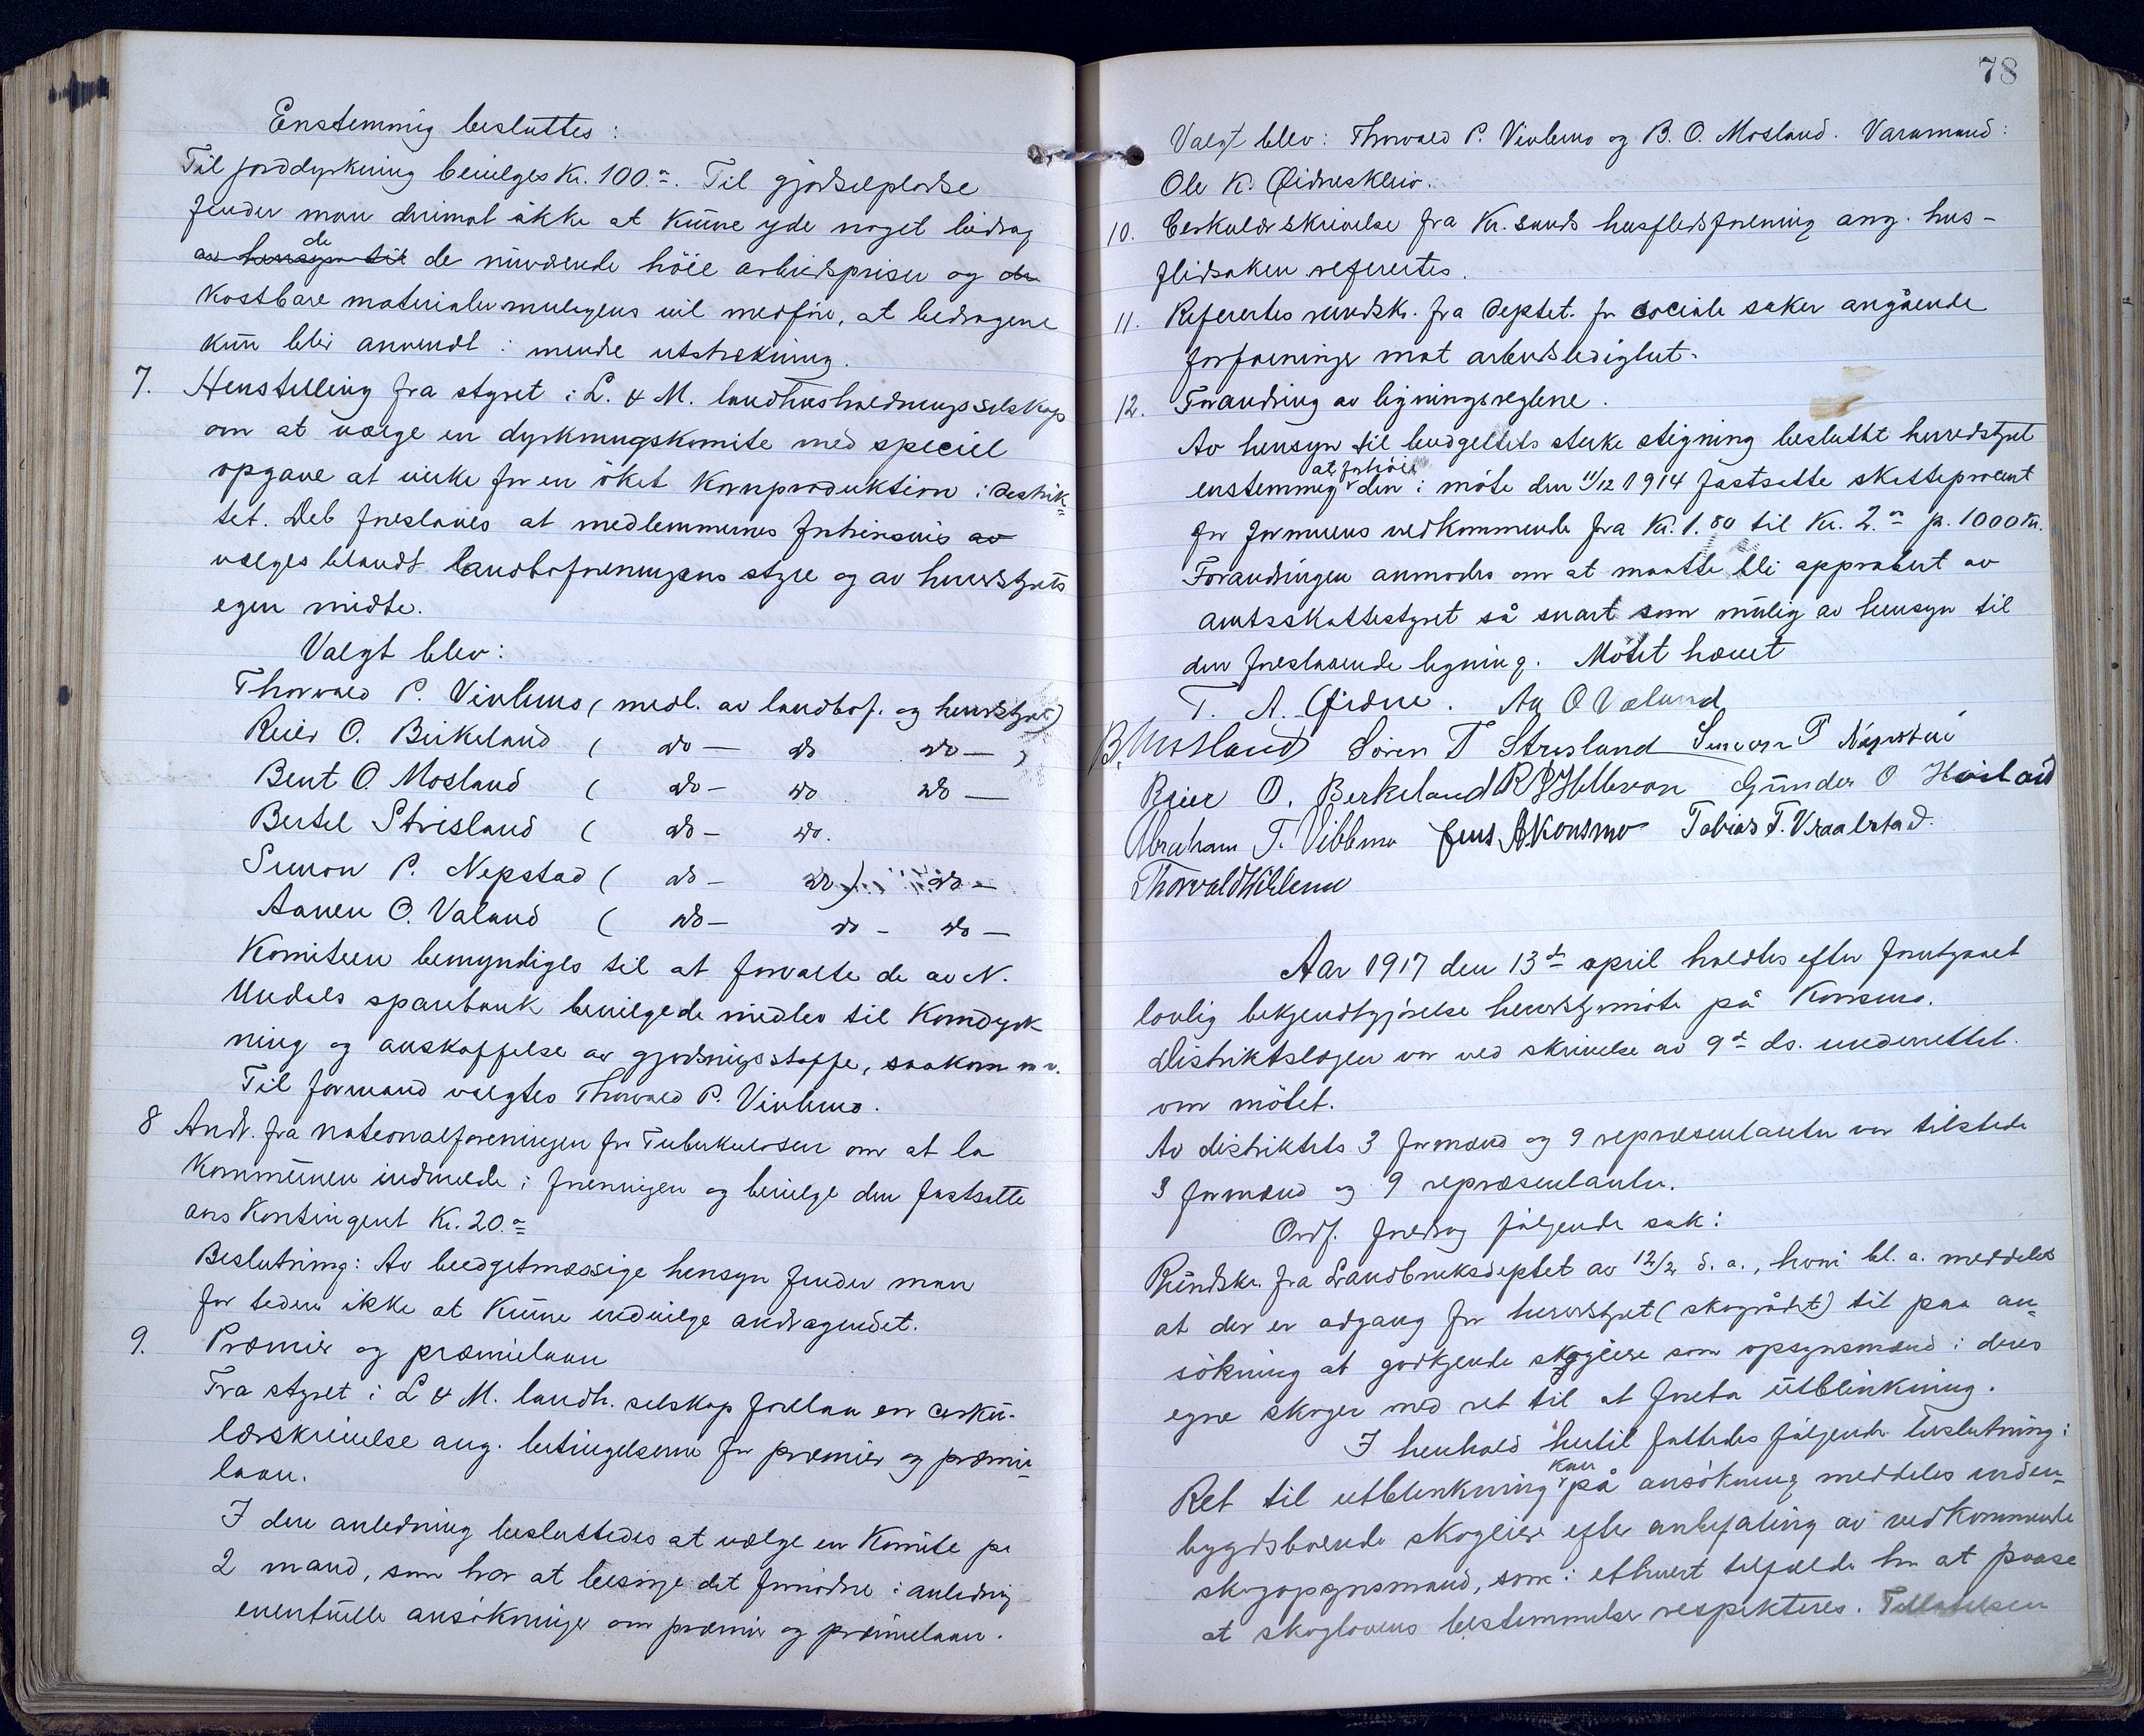 Enstemmig besluttes:
Til jorddyrkning bevilges Kr. 100.-. Til gjødselpladse
finder man derimot ikke at kunne yde noget bidrag
de
av hensyn til de nuværende höie arbeidspriser og de
kostbare materialer muligens vil medföre, at bidragene
kun blir anvendt i mindre utstrekning.
7. Henstilling fra styret i L. & M. landhusholdningsselskap
om at vælge en dyrkningskomite med speciel
opgave at virke for en öket kornproduktion i distrik=
tet. Det foreslaaes at medlemmerne fortrinsvis av
vælges blandt landboforeningens styre og av herredstyrets
egen midte.
Valgt blev:
Thorvald P. Viblemo ( medl. av landbof. og herredstyret)
Reier O. Birkeland ( do — do do — )
Bent O. Mosland ( do – do do —
Bertel Strisland ( do – do.
Simon P. Nepstad ( do – do ) do –
Aanen O. Valand ( do – do – do –
Komiteen bemyndiges til at forvalte de av N.
Undals sparebank bevilgede midler til korndyrk
ning og anskaffelse av gjødningsstoffe, saakorn m.v.
Til formand valgtes Thorvald P. Viblemo.
8 Andr. fra nationalforeningen for Tuberkulosen om at la
kommunen indmelde i foreningen og bevilge den fastsatte
ars kontingent Kr. 20.-
Beslutning: Av budgetmæssige hensyn finder man
for tiden ikke at kunne indvilge andragendet.
9. Præmier og præmielaan
Fra styret i L & M. landh. selskap forelaa en cirku-
lærskrivelse ang. betingelserne for præmier og præmie-
laan.
I den anledning besluttedes at vælge en komite på
2 mand, som har at besörge det fornödne i anledning
eventuelle ansökninger om præmier og præmielaan.
78
Valgt blev: Thorvald P. Viblemo og B. O. Mosland. Varamand:
Ole K. Øidneskleiv.
10. Cirkulærskrivelse fra Kr.sands husflidsforening ang. hus-
flidsaken refereretes.
11. Refereretes rundsk. fra Deptet. for sociale saker angående
forføininger mot arbeidsledighet.
12. Forandring av ligningsreglene.
Av hensyn til budgettets sterke stigning besluttet herredstyret
at forhöie
enstemmig den i möte den 11/12 1914 fastsatte skatteprocent
for formuens vedkommende fra Kr. 1.80 til Kr. 2.- p. 1000 Kr.
Forandringen anmodes om at maatte bli approbert av
amtsskattestyret så snart som mulig av hensyn til
den forestaaende ligning. Mötet hævet
T. A. Øidne. Aa O Valand
B. Mosland Sören T Strisland Simon P Nepstad
Reier O. Birkeland Gunder O Høiland
Abraham T. Viblemo Jens A Konsmo Tobias T. Vraalstad.
Thorvald Viblemo
Aar 1917 den 13de april holdtes efter forutgaaet
lovlig bekjendtgjörelse herredstyremöte på Konsmo.
Distriktslægen var ved skrivelse av 9de ds. underrettet
om mötet.
Av distriktets 3 formænd og 9 repræsentanter var tilstede
3 formænd og 9 repræsentanter.
Ordf. foredrog følgende sak:
Rundskr. fra Landbruksdeptet av 12/2 d. a., hvori bl. a. meddeles
at der er adgang for herredstyret (skogrådet) til paa an=
sökning at godkjende skogeiere som opsynsmænd i deres
egne skoger med ret til at foreta utblinkning.
I henhold hertil fattedes følgende beslutning:
kan
Ret til utblinkning på ansökning meddeles inden-
bygdsboende skogeiere efter anbefaling av vedkommende
skogopsynsmand, som i ethvert tilfælde har at paase
at skoglovens bestemmelser respekteres. Tilladelsen